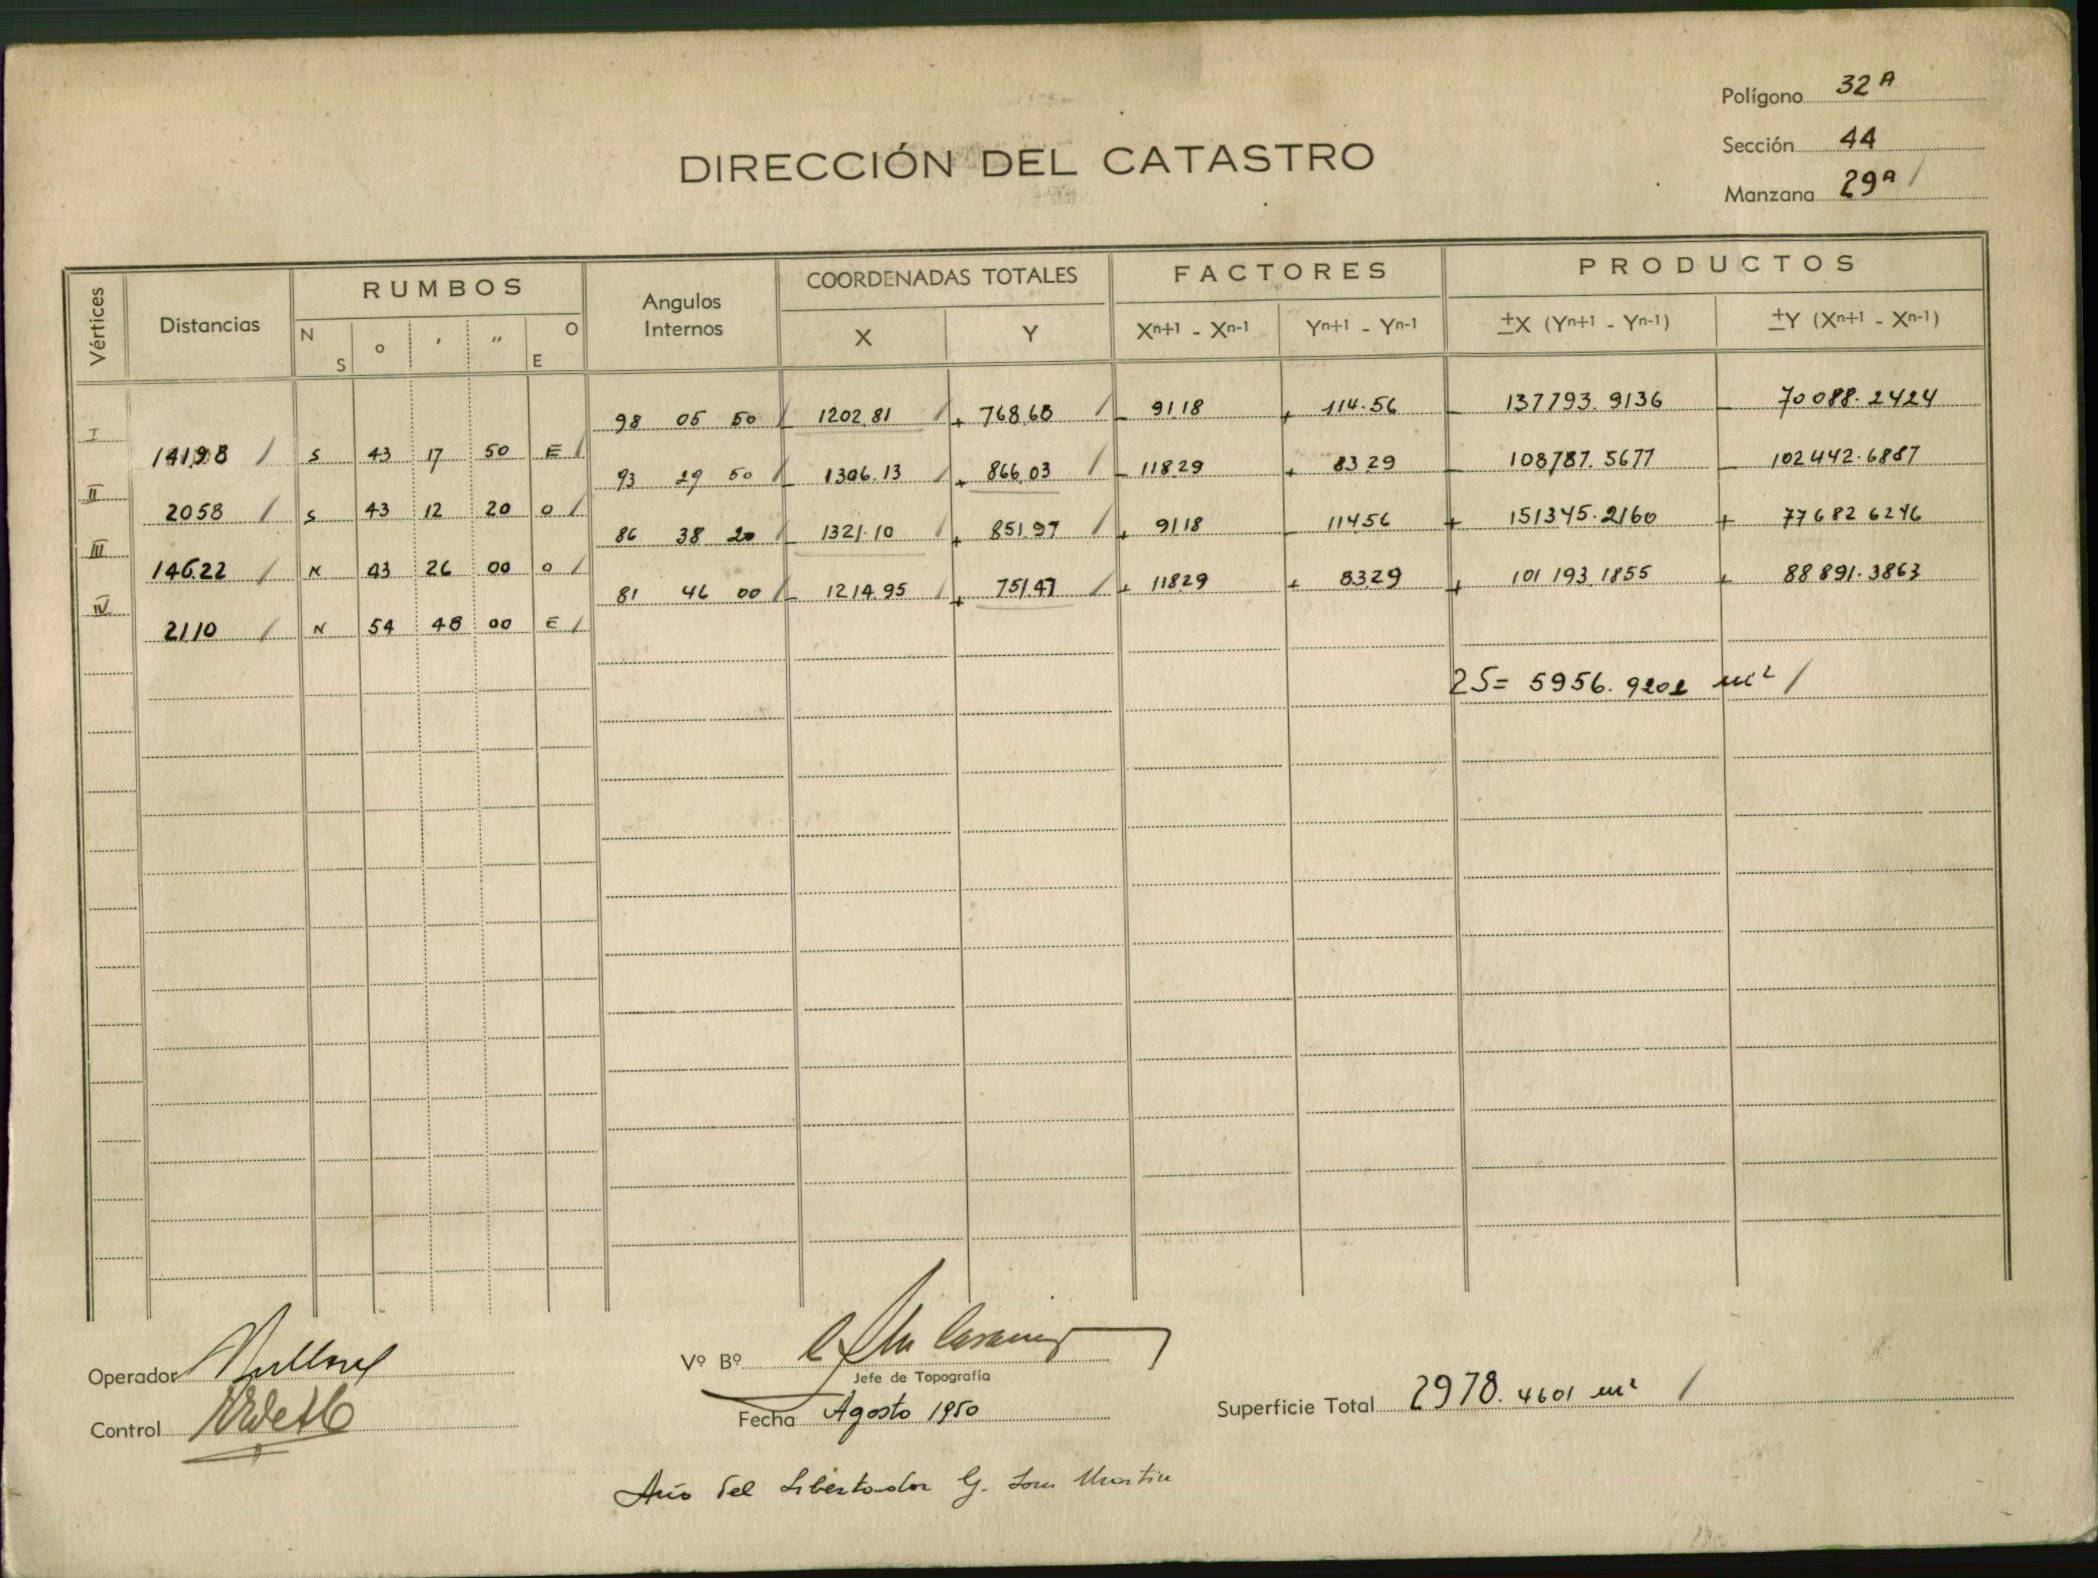 Polígono 32 A
Sección 44
Manzana 29 A /
DIRECCIÓN DEL CATASTRO
Vértices Distancias RUMBOS Angulos Internos COORDENADAS TOTALES FACTORES PRODUCTOS
N S o ' " O E X Y Xn+1 - Xn-1 Yn+1 - Yn-1 ±X (Yn+1 - Yn-1) ±Y (Xn+1 - Xn-1)
I 98 05 50 / - 1202.81 / + 768.68 / - 91 18 + 114.56 - 137793.9136 - 70088.2424
141.98 / S 43 17 50 E /
II 93 29 50 / - 1306.13 / + 866.03 / - 118 29 + 83 29 - 108787.5677 - 102442.6887
20 58 / S 43 12 20 O /
III 86 38 20 / - 1321.10 / + 851.97 / + 91 18 - 114 56 + 151345.2160 + 77682 6246
146.22 / N 43 26 00 O /
IV 81 46 00 / - 1214.95 / + 751.47 / + 118 29 + 83 29 + 101 193 1855 + 88 891.3863
21 10 / N 54 48 00 E /
2S = 5956.9202 m² /
Operador
Vº Bº
Jefe de Topografía
Control
Fecha Agosto 1950
Superficie Total 2978.4601 m² /
Año del Libertador G. San Martin